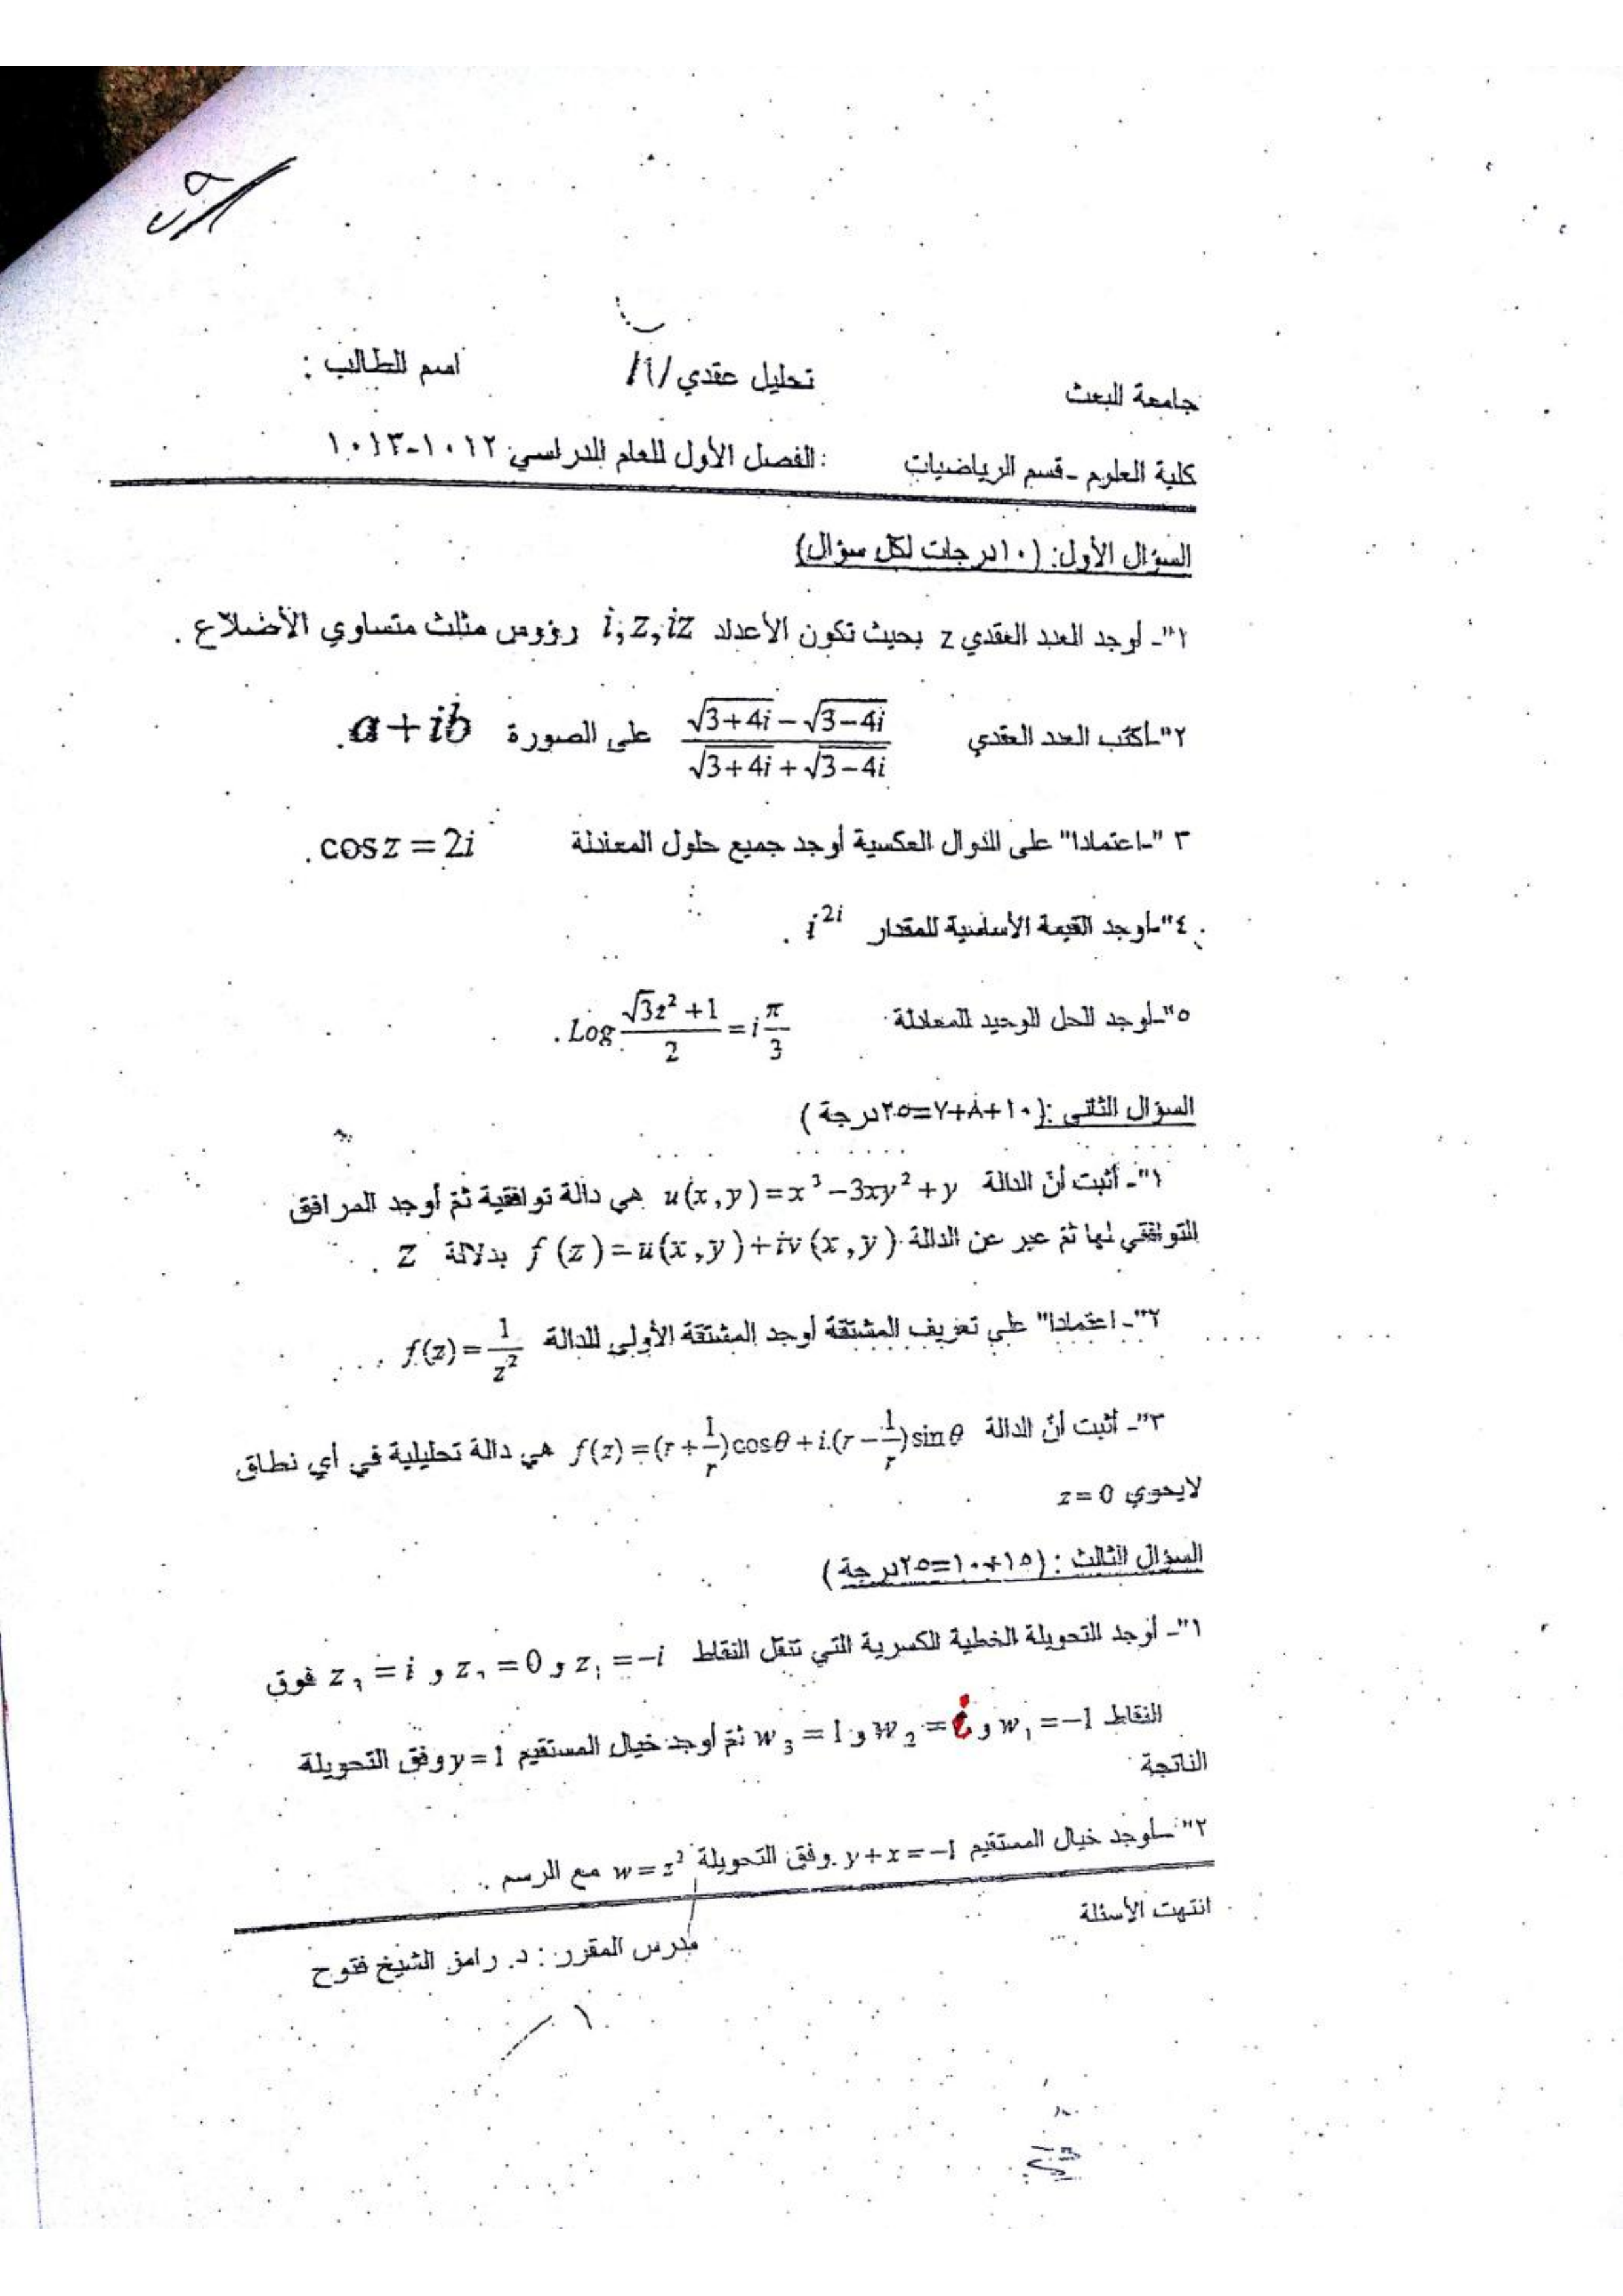 جامعة البعث تحليل عقدي /١/ اسم الطالب :
كلية العلوم -قسم الرياضيات الفصل الأول للعام الدراسي ٢٠١٢-٢٠١٣
السؤال الأول: (١٠درجات لكل سؤال)
١"- أوجد العدد العقدي z بحيث تكون الأعداد i, z, iz رؤوس مثلث متساوي الأضلاع .
٢"-اكتب العدد العقدي (√(3+4i) − √(3−4i)) / (√(3+4i) + √(3−4i)) على الصورة a+ib .
٣"-اعتمادا" على الدوال العكسية أوجد جميع حلول المعادلة cos z = 2i .
٤"-أوجد القيمة الأساسية للمقدار i^{2i} .
٥"-أوجد الحل الوحيد للمعادلة Log (√3z²+1)/2 = i π/3 .
السؤال الثاني :(١٠+٨+٧=٢٥درجة )
١"- أثبت أنّ الدالة u(x,y)=x³−3xy²+y هي دالة توافقية ثمّ أوجد المرافق
التوافقي لها ثمّ عبر عن الدالة f(z)=u(x,y)+iv(x,y) بدلالة z .
٢"- اعتمادا" على تعريف المشتقة أوجد المشتقة الأولى للدالة f(z)=1/z² .
٣"- أثبت أنّ الدالة f(z)=(r+1/r)cosθ+i.(r−1/r)sinθ هي دالة تحليلية في أي نطاق
لايحوي z=0
السؤال الثالث : (١٥+١٠=٢٥درجة )
١"- أوجد التحويلة الخطية الكسرية التي تنقل النقاط z₁=−i و z₂=0 و z₃=i فوق
النقاط w₁=−1 و w₂=i و w₃=1 ثمّ أوجد خيال المستقيم y=1 وفق التحويلة
الناتجة
٢"-أوجد خيال المستقيم y+x=−1 وفق التحويلة w=z² مع الرسم .
انتهت الأسئلة
مدرس المقرر : د. رامز الشيخ فتوح